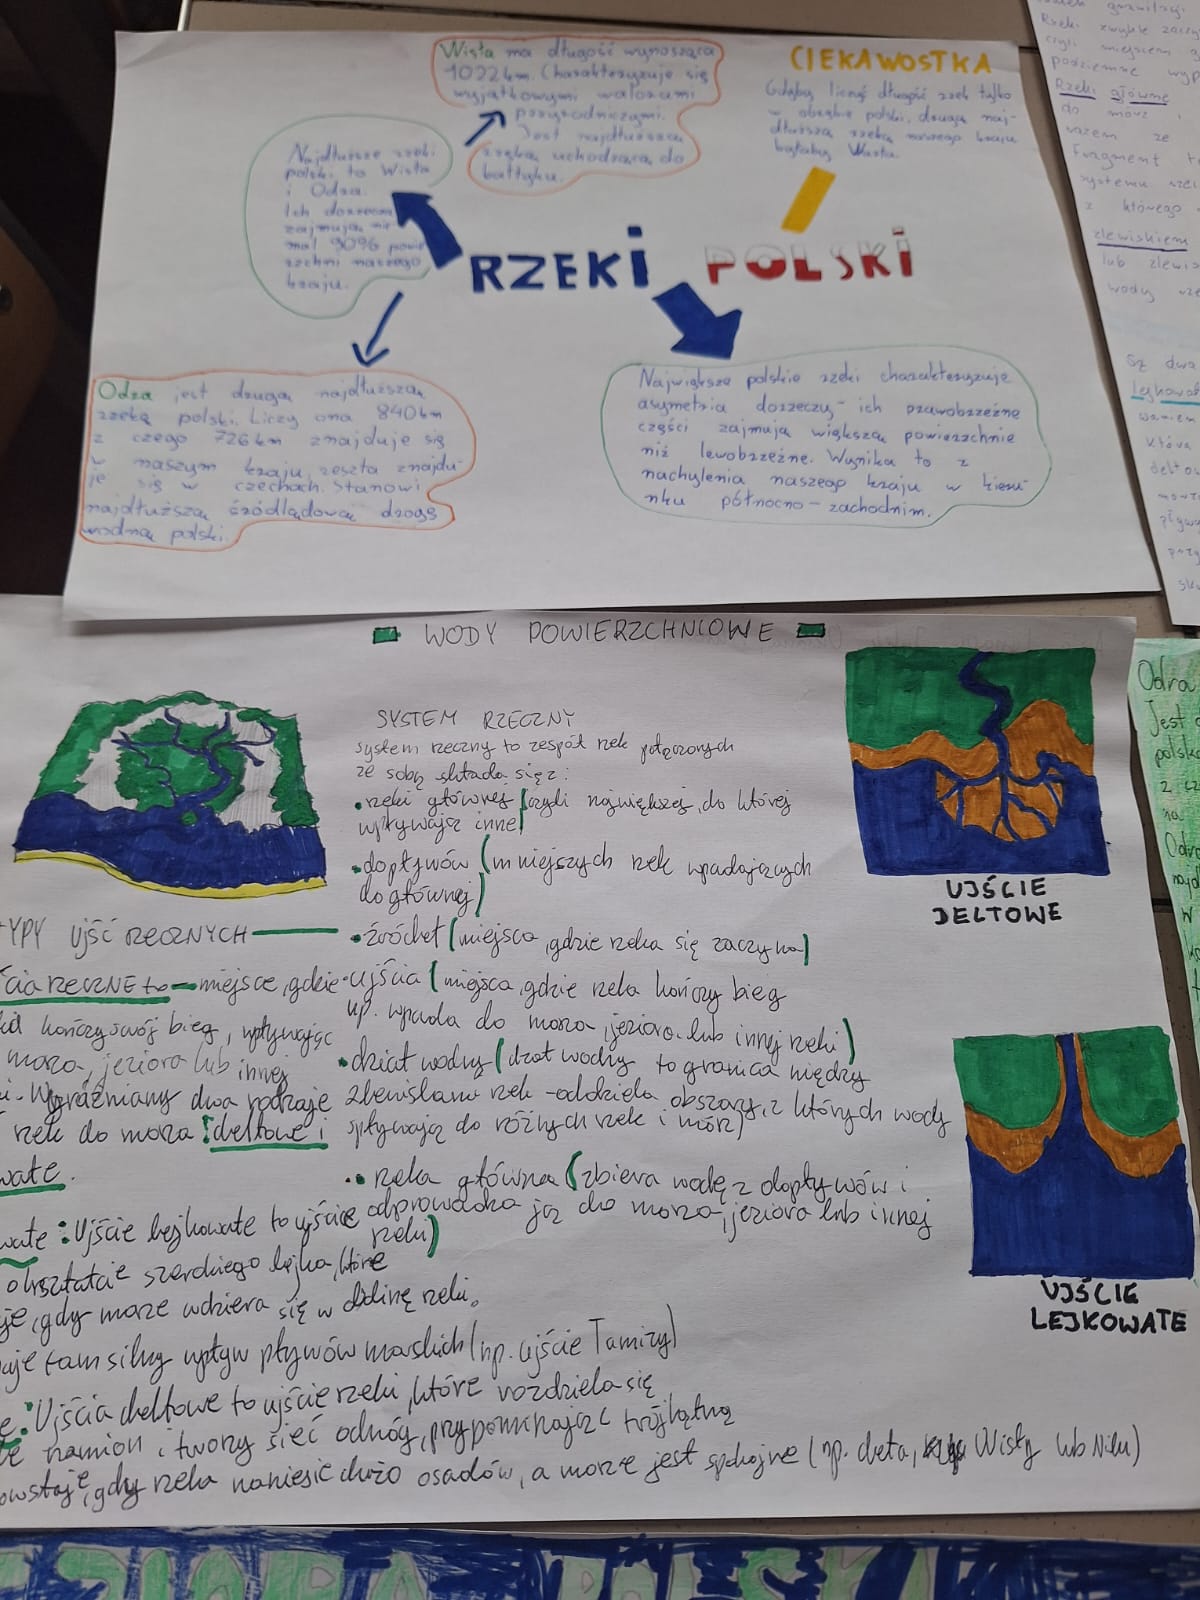 Wisła ma długość wynoszącą
1022 km. Charakteryzuje się
wyjątkowymi walorami
przyrodniczymi.
Jest najdłuższą
rzeką uchodzącą do
bałtyku.
CIEKAWOSTKA
Gdyby liczyć długość rzek tylko
w obrębie polski, drugą naj-
dłuższą rzeką naszego kraju
byłaby Warta.
Najdłuższe rzeki
polski to Wisła
i Odra.
Ich dorzecza
zajmują nie-
mal 90% powie
rzchni naszego
kraju.
RZEKI POLSKI
Odra jest drugą najdłuższą
rzeką polski. Liczy ona 840km
z czego 726km znajduje się
w naszym kraju, reszta znajdu-
je się w czechach. Stanowi
najdłuższą śródlądową drogę
wodną polski.
Największe polskie rzeki charakteryzuje
asymetria dorzeczy - ich prawobrzeżne
części zajmują większą powierzchnię
niż lewobrzeżne. Wynika to z
nachylenia naszego kraju w kieru
nku północno - zachodnim.
Rzeki zwykle
czyli miejscem
podziemne
Rzeki główne
do mórz
razem ze
Fragment
systemu
z którego
zlewiskiem
lub
wody
Są dwa
Lejkowa
Która
WODY POWIERZCHNIOWE
SYSTEM RZECZNY
system rzeczny to zespół rzek połączonych
ze sobą składa się z:
• rzeki głównej (czyli największej, do której
wpływają inne)
• dopływów (mniejszych rzek wpadających
do głównej)
• źródeł (miejsca, gdzie rzeka się zaczyna)
• ujścia (miejsca, gdzie rzeka kończy bieg
np. wpada do morza, jeziora lub innej rzeki)
• dział wodny (dział wodny to granica między
zlewiskami rzek - oddziela obszary, z których wody
spływają do różnych rzek i mórz)
• rzeka główna (zbiera wodę z dopływów i
odprowadza ją do morza, jeziora lub innej
rzeki)
UJŚCIE
DELTOWE
UJŚCIE
LEJKOWATE
TYPY UJŚĆ RZECZNYCH
RZECZNE to - miejsce, gdzie
kończy swój bieg, wpływając
morza, jeziora lub innej
Wyraźniamy dwa rodzaje
rzek do morza: deltowe i
: Ujście lejkowate to ujście
o kształcie szerokiego lejka, które
gdy morze wdziera się w dolinę rzeki.
tam silny wpływ pływów morskich (np. ujście Tamizy)
: Ujścia deltowe to ujście rzeki, które rozdziela się
ramion i tworzy sieć odnóg, przypominając trójkątną
, gdy rzeka naniesie dużo osadów, a morze jest spokojne (np. delta, Wisły lub Nilu)
Odra
Jest
polsk
z
na
Odra
w
JEZIORA POLSKI